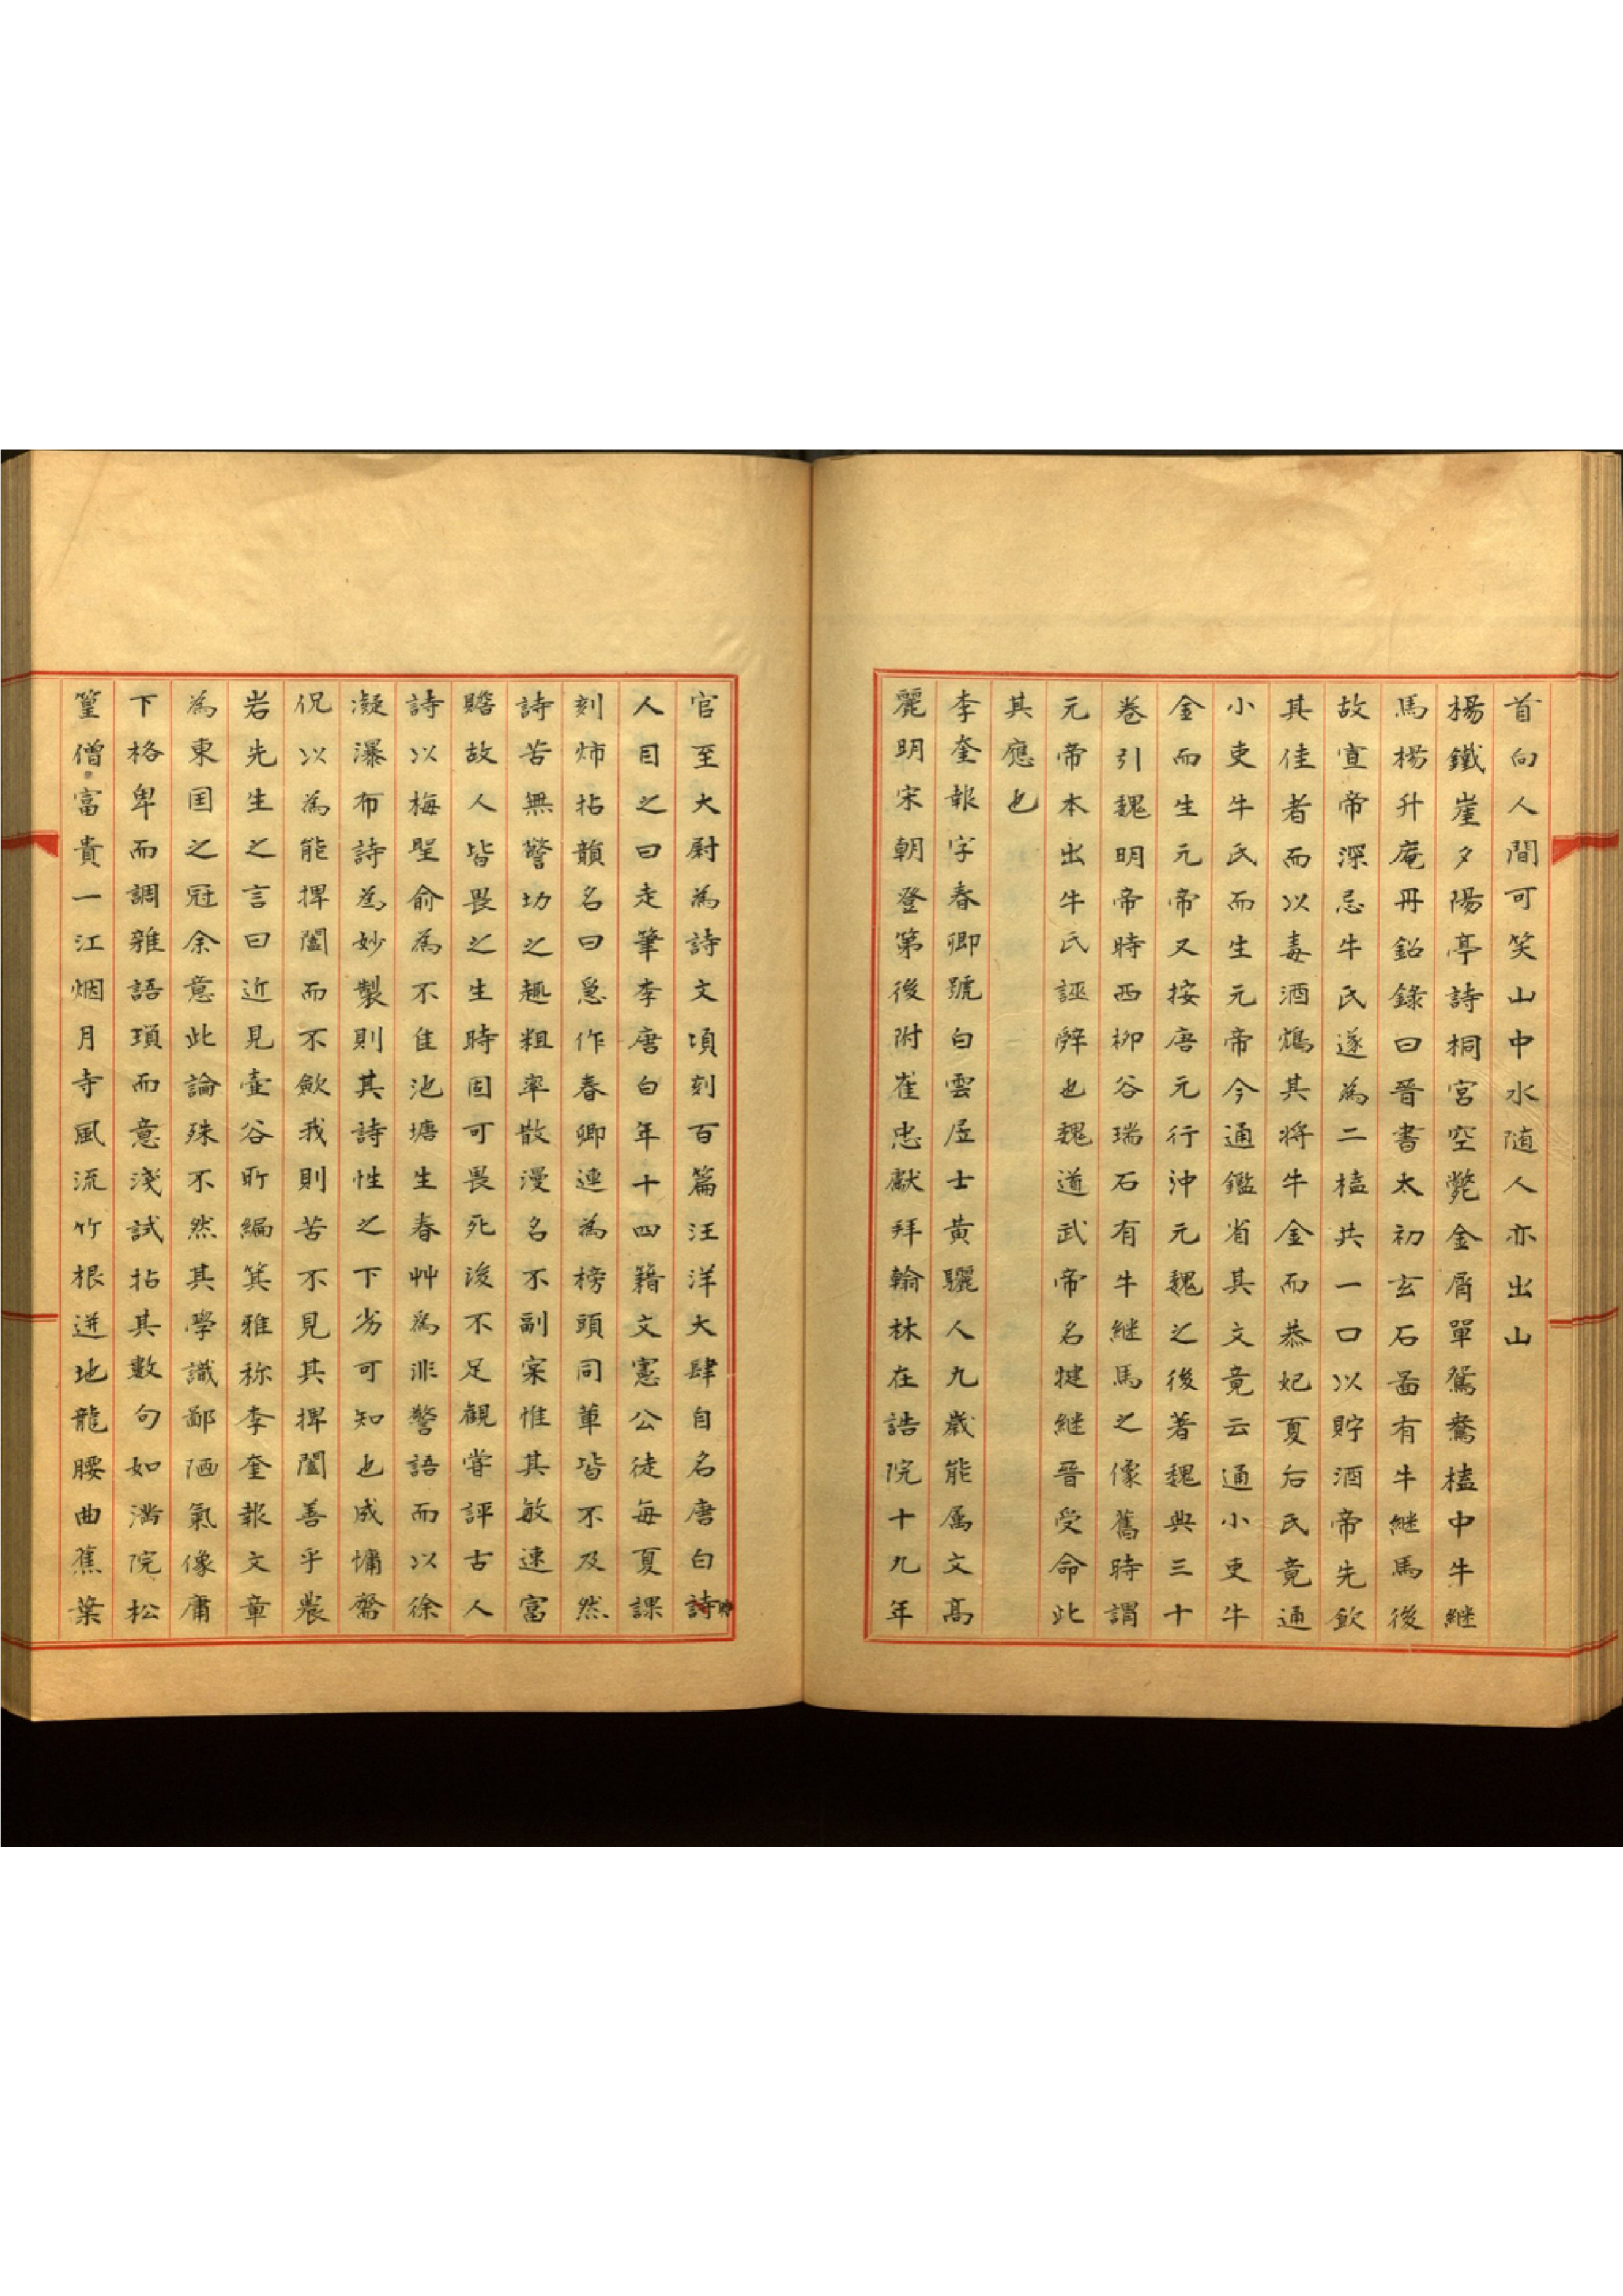 首向人間可笑山中水随人亦出山
楊鐵崖夕陽亭詩桐宮空斃金屑單鴛鴦榼中牛継
馬楊升庵丹鉛錄曰晋書太初玄石啚有牛継馬後
故宣帝深忌牛氏遂為二榼共一口以貯酒帝先飲
其佳者而以毒酒鴆其将牛金而恭妃夏后氏竟通
小吏牛氏而生元帝今通鑑省其文竟云通小吏牛
金而生元帝又按唐元行沖元魏之後著魏典三十
卷引魏明帝時西柳谷瑞石有牛継馬之像舊時謂
元帝本出牛氏誣辤也魏道武帝名犍継晋受命此
其應也
李奎報字春卿號白雲居士黃驪人九歲能属文髙
麗明宋朝登第後附崔忠獻拜翰林在誥院十九年
官至大尉為詩文頃刻百篇汪洋大肆自名唐白詩
人目之曰走筆李唐白年十四籍文憲公徒每夏課
刻炉拈韻名曰急作春卿連為榜頭同軰皆不及然
詩苦無警功之趣粗率散漫名不副宲惟其敏速富
贍故人皆畏之生時固可畏死後不足觀甞評古人
詩以梅聖俞為不佳池塘生春艸為非警語而以徐
凝瀑布詩為妙製則其詩性之下劣可知也成慵齋
侃以為能捭闔而不斂我則苦不見其捭闔善乎農
岩先生之言曰近見壼谷所編箕雅称李奎報文章
為東囯之冠余意此論殊不然其學識鄙陋氣像庸
下格卑而調雜語瑣而意淺試拈其數句如滿院松
篁僧富貴一江烟月寺風流竹根迸地龍腰曲蕉葉